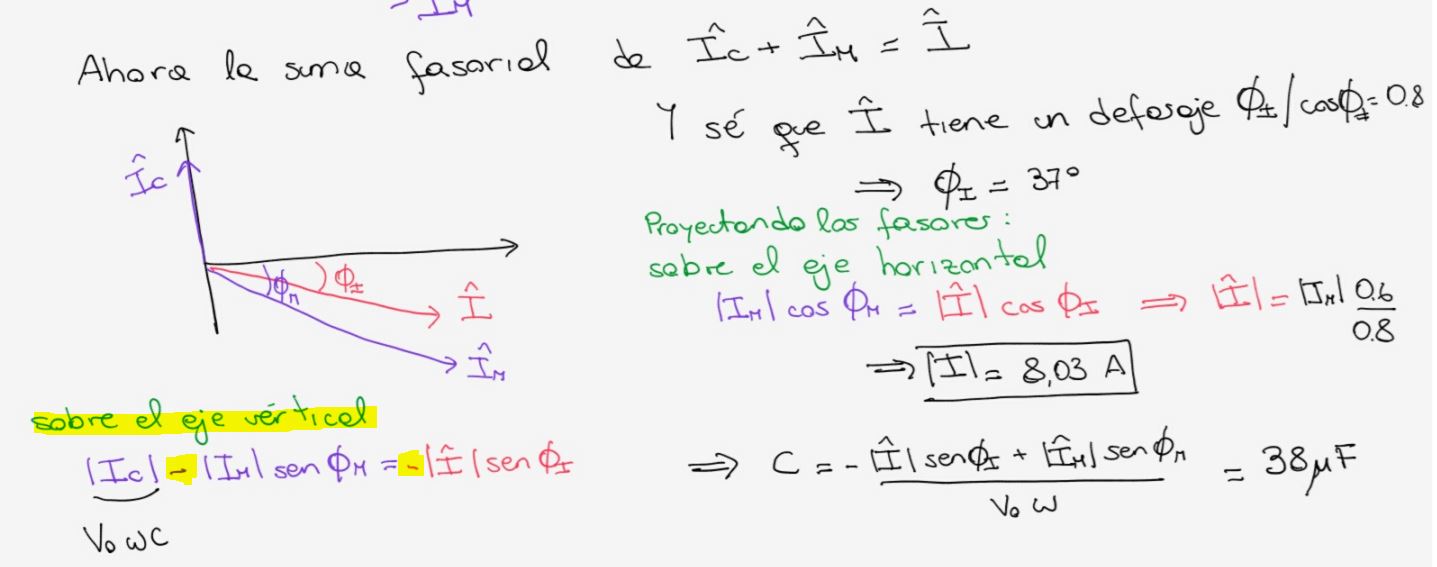 = I_M
Ahora la suma fasorial de Î_C + Î_M = Î
Y sé que Î tiene un defasaje ϕ_I / cosϕ_I = 0.8
⇒ ϕ_I = 37°
Î_C
ϕ_M ϕ_I
Î
Î_M
Proyectando los fasores:
sobre el eje horizontal
|I_M| cos ϕ_M = |Î| cos ϕ_I ⇒ |Î| = |I_M| 0.6/0.8
⇒ |I| = 8,03 A
sobre el eje vértical
|I_C| - |I_M| sen ϕ_M = -|Î| sen ϕ_I
V_0 ω C
⇒ C = (-|Î| sen ϕ_I + |Î_M| sen ϕ_M)/(V_0 ω) = 38 μF